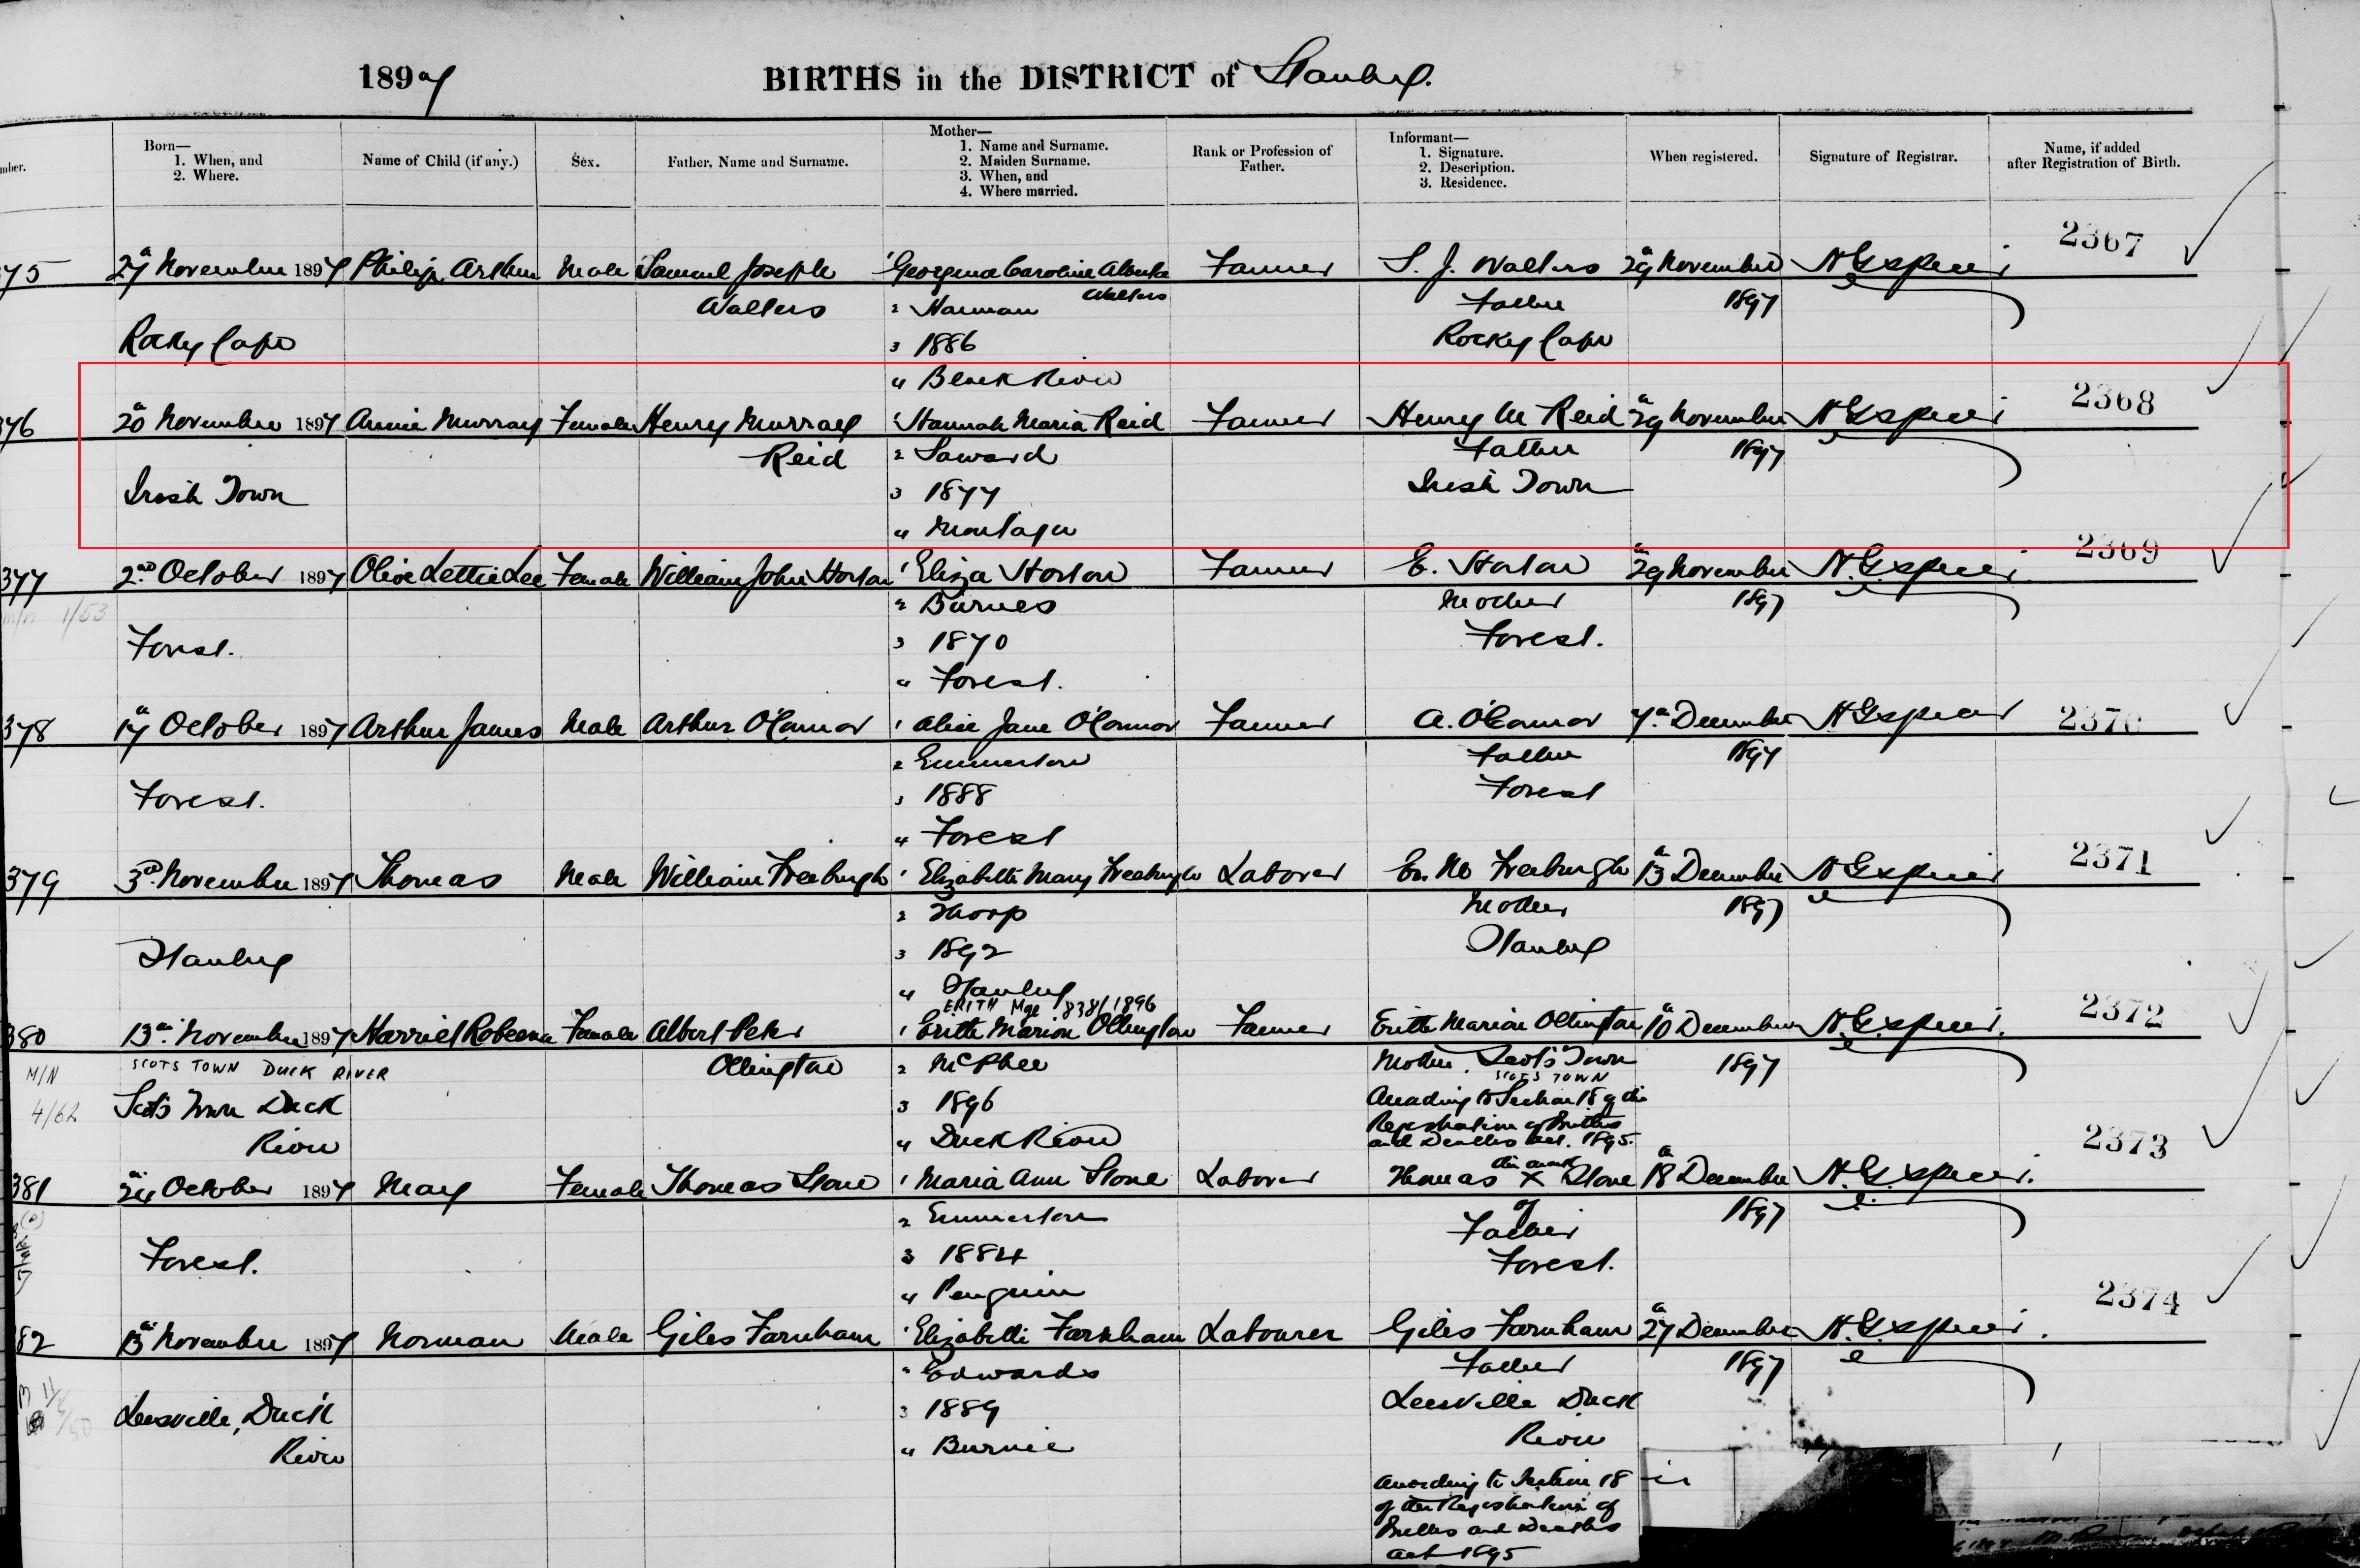 1897 BIRTHS in the DISTRICT of Stanley.
Number.
Born—
1. When, and
2. Where.
Name of Child (if any.)
Sex.
Father, Name and Surname.
Mother—
1. Name and Surname.
2. Maiden Surname.
3. When, and
4. Where married.
Rank or Profession of
Father.
Informant—
1. Signature.
2. Description.
3. Residence.
When registered.
Signature of Registrar.
Name, if added
after Registration of Birth.
2367
375 27th November 1897 Philip Arthur Male Samuel Joseph 1 Georgina Caroline Farmer S. J. Walters 29th November
Walters 2 Harman Walters Father 1897
Rocky Cape 3 1886 Rocky Cape
4 Black River
2368
376 20th November 1897 Annie Murray Female Henry Murray 1 Hannah Maria Reid Farmer Henry M Reid 29th November
Reid 2 Saward Father 1897
Irish Town 3 1877 Irish Town
4 Montagu
2369
377 2nd October 1897 Olive Lettie Lee Female William John Horton 1 Eliza Horton Farmer E. Horton 29th November
M/N 1/53 2 Barnes Mother 1897
Forest. 3 1870 Forest.
4 Forest.
2370
378 17th October 1897 Arthur James Male Arthur O'Connor 1 Alice Jane O'Connor Farmer A. O'Connor 7th December
2 Emmerton Father 1897
Forest. 3 1888 Forest
4 Forest
2371
379 3rd November 1897 Thomas Male William Freeburgh 1 Elizabeth Mary Freeburgh Laborer E. M. Freeburgh 13th December
2 Thorp Mother 1897
Stanley 3 1892 Stanley
4 Stanley
ERITH Mge 838/1896
2372
380 13th November 1897 Harriet Robeena Female Albert Peter 1 Erith Marion Ollington Farmer Erith Marion Ollington 10th December
M/N SCOTS TOWN DUCK RIVER Ollington 2 McPhee Mother. Scots Town 1897
SCOTS TOWN
4/62 Scots Town Duck River 3 1896 According to Section 18 of the
4 Duck River Registration of Births
and Deaths Act. 1895.
2373
381 24th October 1897 May Female Thomas Stone 1 Maria Ann Stone Laborer Thomas X Stone 18th December
his mark
of
2 Emmerton Father 1897
Forest. 3 1884 Forest.
4 Penguin
2374
382 13th November 1897 Norman Male Giles Farnham 1 Elizabeth Farnham Labourer Giles Farnham 27th December
2 Edwards Father 1897
Leesville, Duck 3 1889 Leesville Duck
River 4 Burnie River
According to Section 18
of the Registration of
Births and Deaths
Act 1895